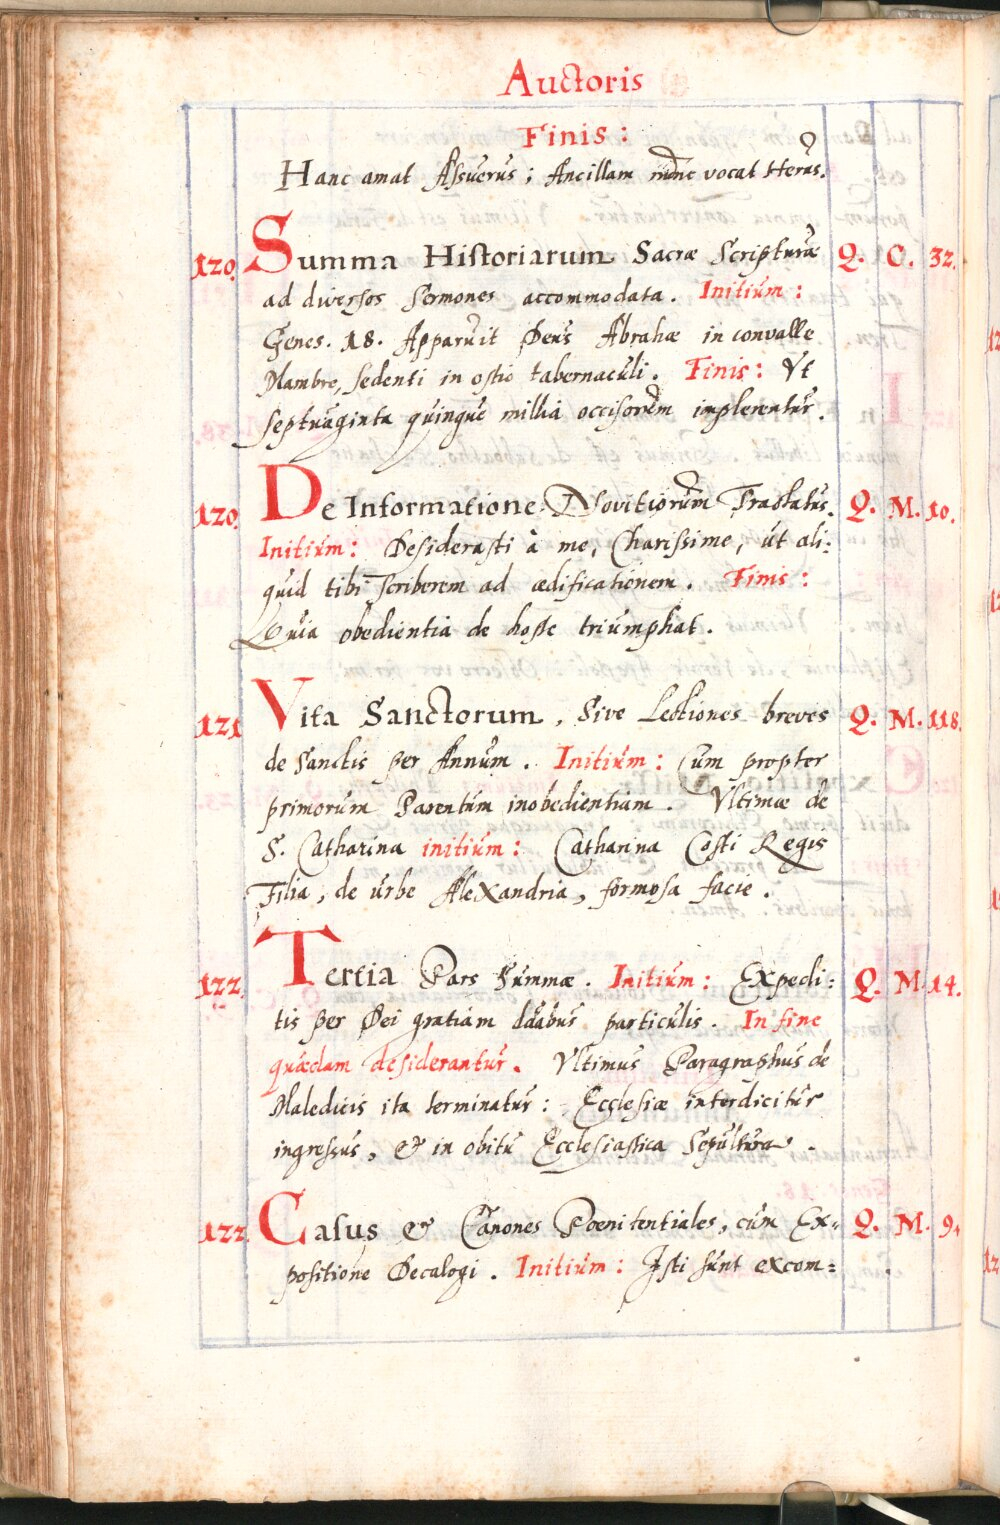 Auctoris
Finis:
Hanc amat Assuerus; Ancillam nunc vocat Herus.
120. Summa Historiarum Sacræ Scripturæ Q. O. 32.
ad diversos sermones accommodata. Initium:
Genes. 18. Apparuit Deus Abrahæ in convalle
Mambre, sedenti in ostio tabernaculi. Finis: Vt
septuaginta quinque millia occisorum implerentur.
120. De Informatione Novitiorum Tractatus. Q. M. 10.
Initium: Desiderasti à me, Charissime, ut ali:
quid tibi scriberem ad ædificationem. Finis:
Quia obedientia de hoste triumphat.
121 Vita Sanctorum, Sive Lectiones breves Q. M. 118.
de Sanctis per Annum. Initium: Cum propter
primorum Parentum inobedientiam. Vltimæ de
S. Catharina initium: Catharina Costi Regis
Filia, de urbe Alexandria, formosa facie.
122. Tertia Pars Summæ. Initium: Expedi: Q. M. 14.
tis per Dei gratiam duabus particulis. In fine
quædam desiderantur. Vltimus Paragraphus de
Maledicis ita terminatur: Ecclesiæ interdicitur
ingressus, & in obitu Ecclesiastica Sepultura.
122. Casus & Canones Poenitentiales, cum Ex= Q. M. 9.
positione Decalogi. Initium: Isti sunt excom=